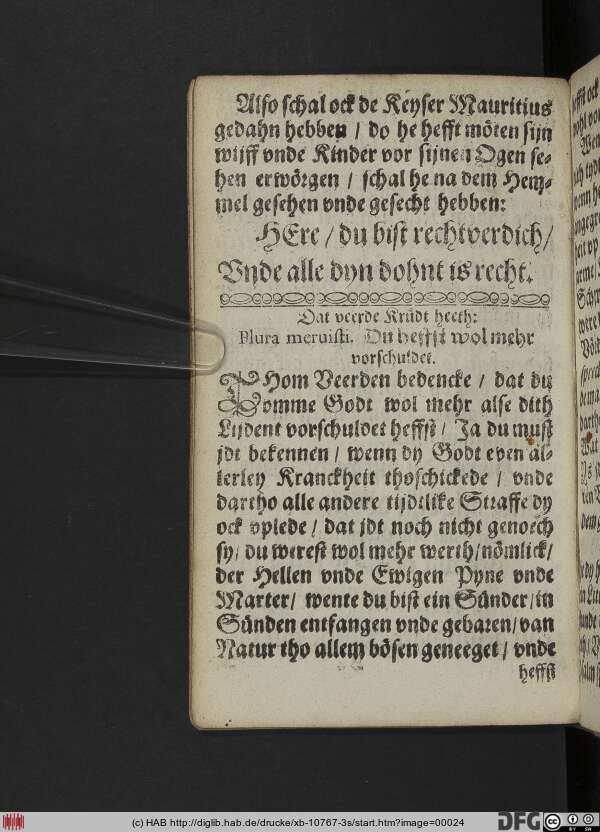 Also schal ock de Keyser Mauritius
gedahn hebben / do he hefft möten sijn
wijff vnde Kinder vor sijnen Ogen se-
hen erwörgen / schal he na dem Hem-
mel gesehen vnde gesecht hebben:
HEre / du bist rechtverdich /
Vnde alle dyn dohnt is recht.
Dat veerde Krüdt heeth:
Plura meruisti. Du heffst wol mehr
vorschuldet.
THom Veerden bedencke / dat du
vomme Godt wol mehr alse dith
Lijdent vorschuldet heffst / Ja du must
jdt bekennen / wenn dy Godt even al-
lerley Kranckheit thoschickede / vnde
dartho alle andere tijdtlike Straffe dy
ock vplede / dat jdt noch nicht genoech
sy / du werest wol mehr werth / nömlick /
der Hellen vnde Ewigen Pyne vnde
Marter / wente du bist ein Sünder / in
Sünden entfangen vnde gebaren / van
Natur tho allem bösen geneeget / vnde
heffst
(c) HAB http://diglib.hab.de/drucke/xb-10767-3s/start.htm?image=00024
DFG
CC BY SA